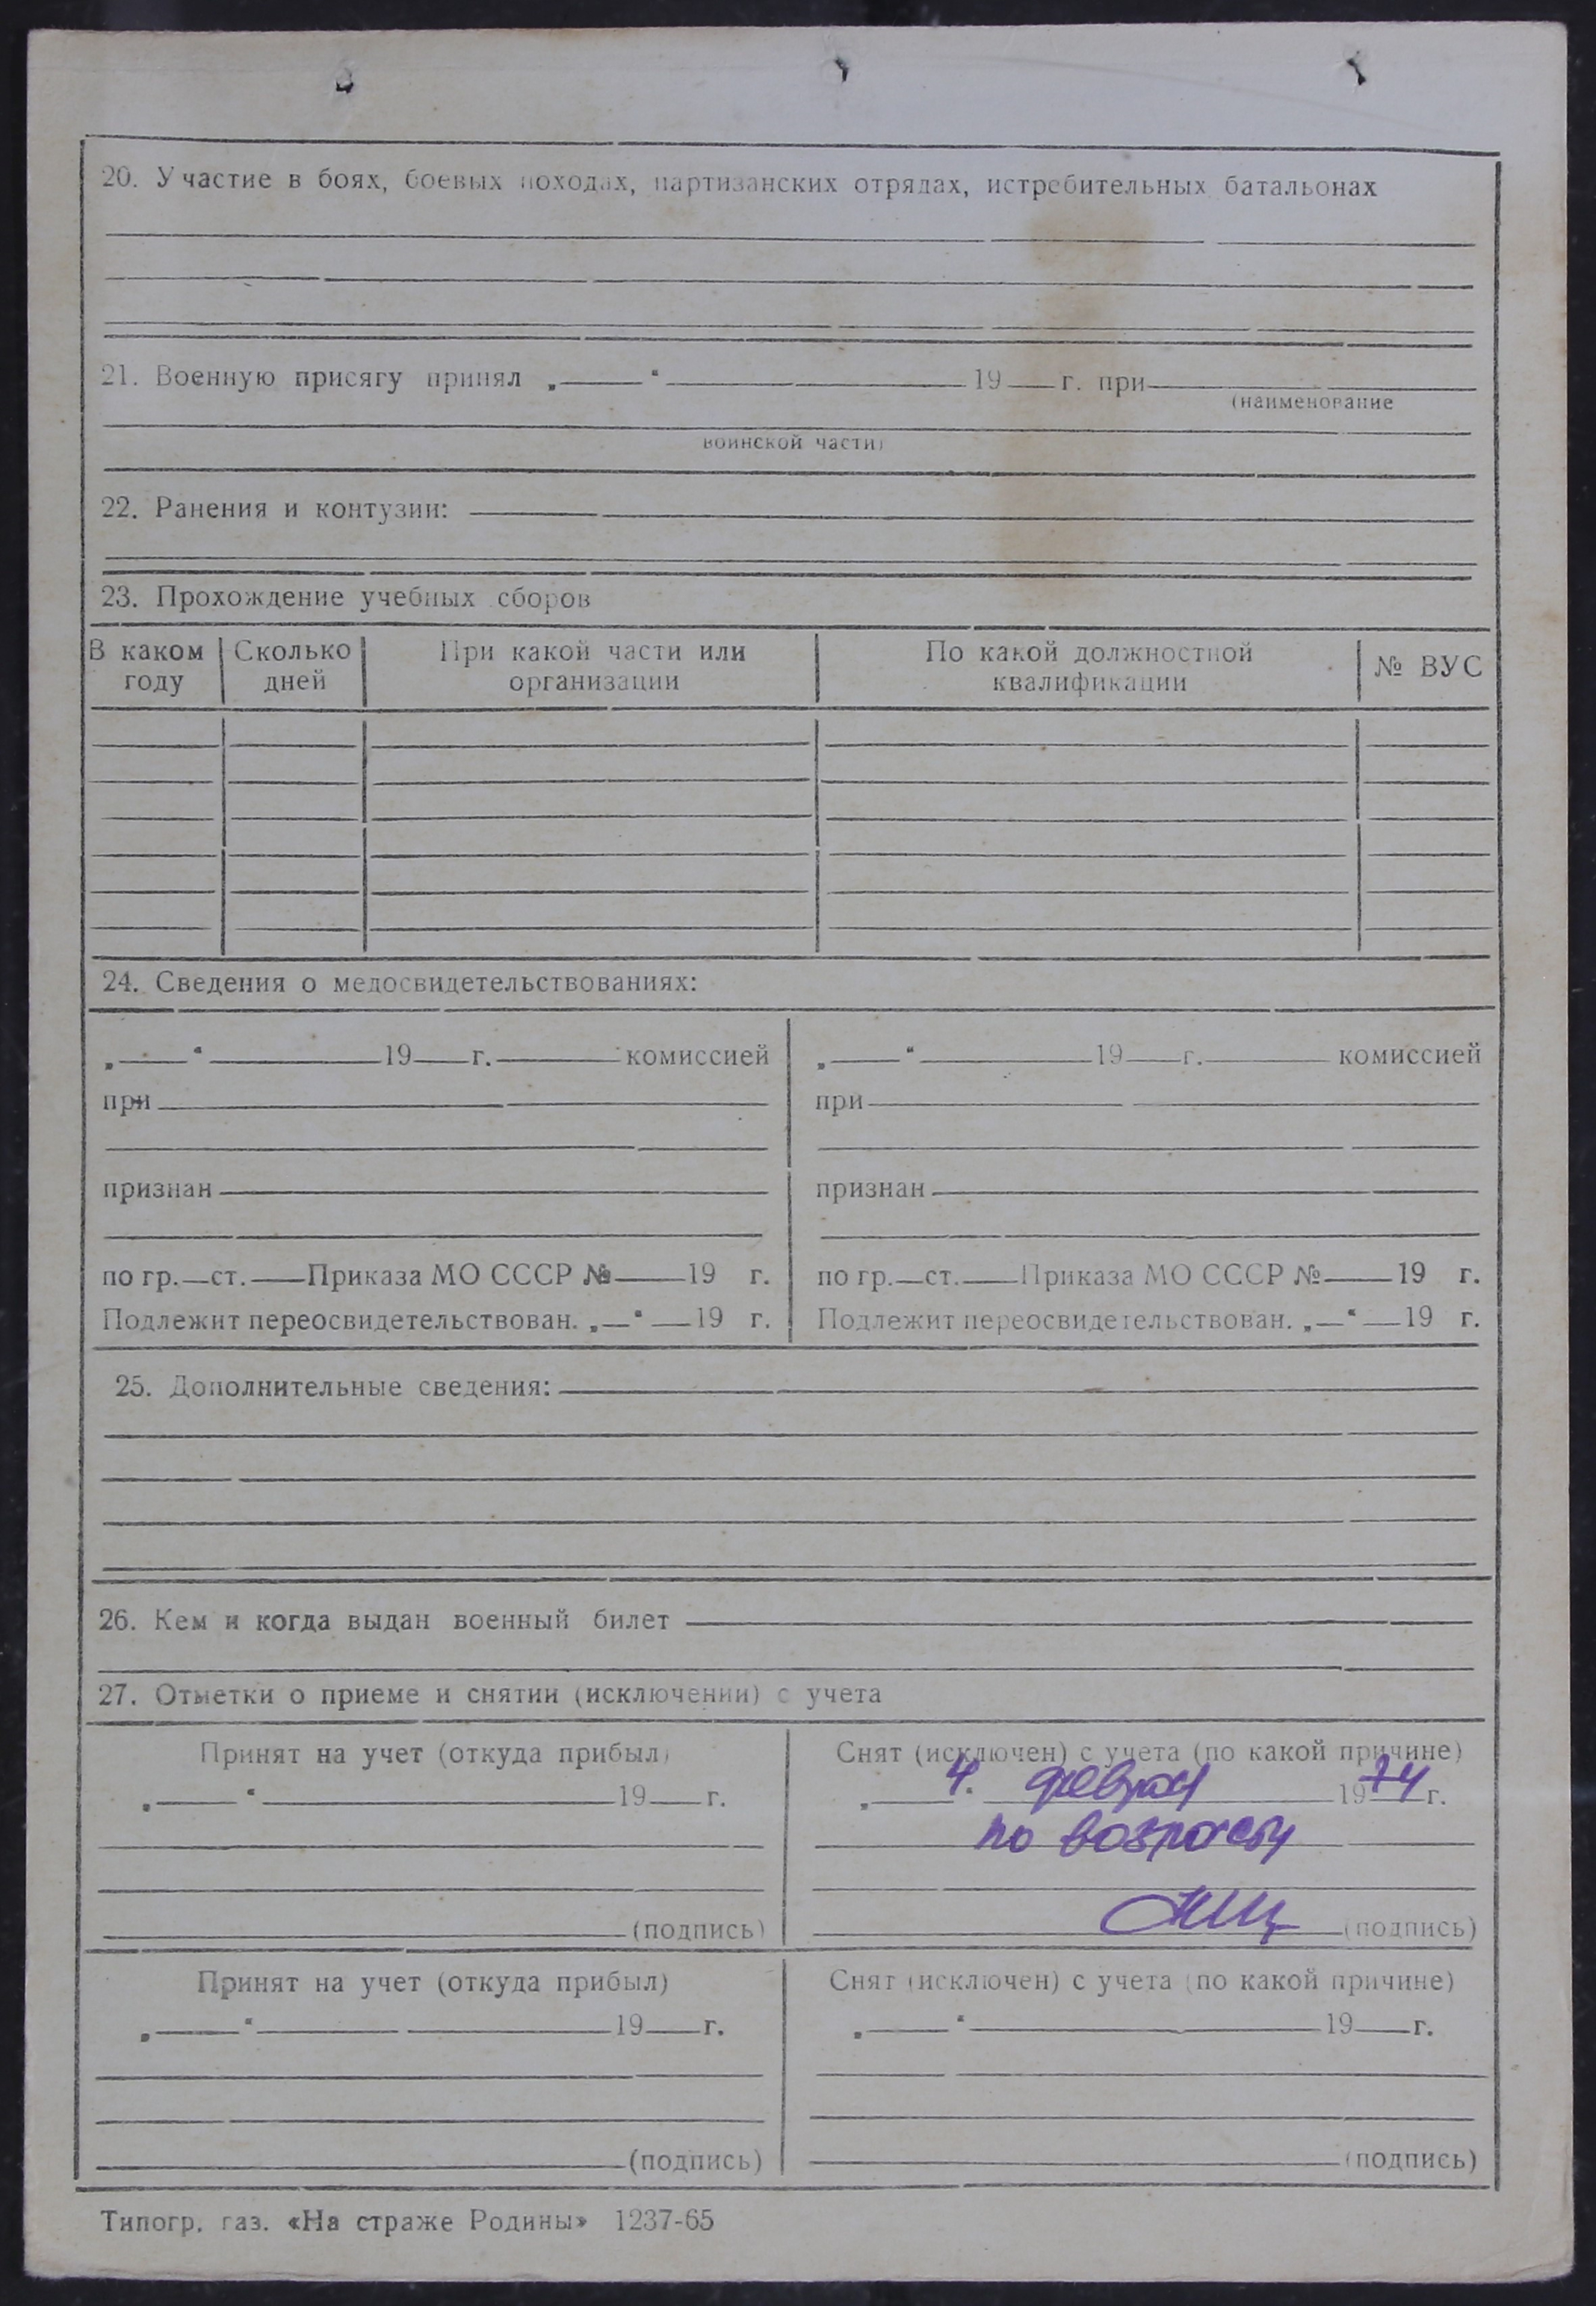 20. Участие в боях, боевых походах, партизанских отрядах, истребительных батальонах
21. Военную присягу принял „ “ 19 г. при
(наименование
воинской части)
22. Ранения и контузии:
23. Прохождение учебных сборов
В каком году Сколько дней При какой части или организации По какой должностной квалификации № ВУС
24. Сведения о медосвидетельствованиях:
„ “ 19 г. комиссией „ “ 19 г. комиссией
при при
признан признан
по гр. ст. Приказа МО СССР № 19 г. по гр. ст. Приказа МО СССР № 19 г.
Подлежит переосвидетельствован. „ “ 19 г. Подлежит переосвидетельствован. „ “ 19 г.
25. Дополнительные сведения:
26. Кем и когда выдан военный билет
27. Отметки о приеме и снятии (исключении) с учета
Принят на учет (откуда прибыл) Снят (исключен) с учета (по какой причине)
„ “ 19 г. „ 4. феврал 1974 г.
по возрасту
(подпись) (подпись)
Принят на учет (откуда прибыл) Снят (исключен) с учета (по какой причине)
„ “ 19 г. „ “ 19 г.
(подпись) (подпись)
Типогр. газ. «На страже Родины» 1237-65